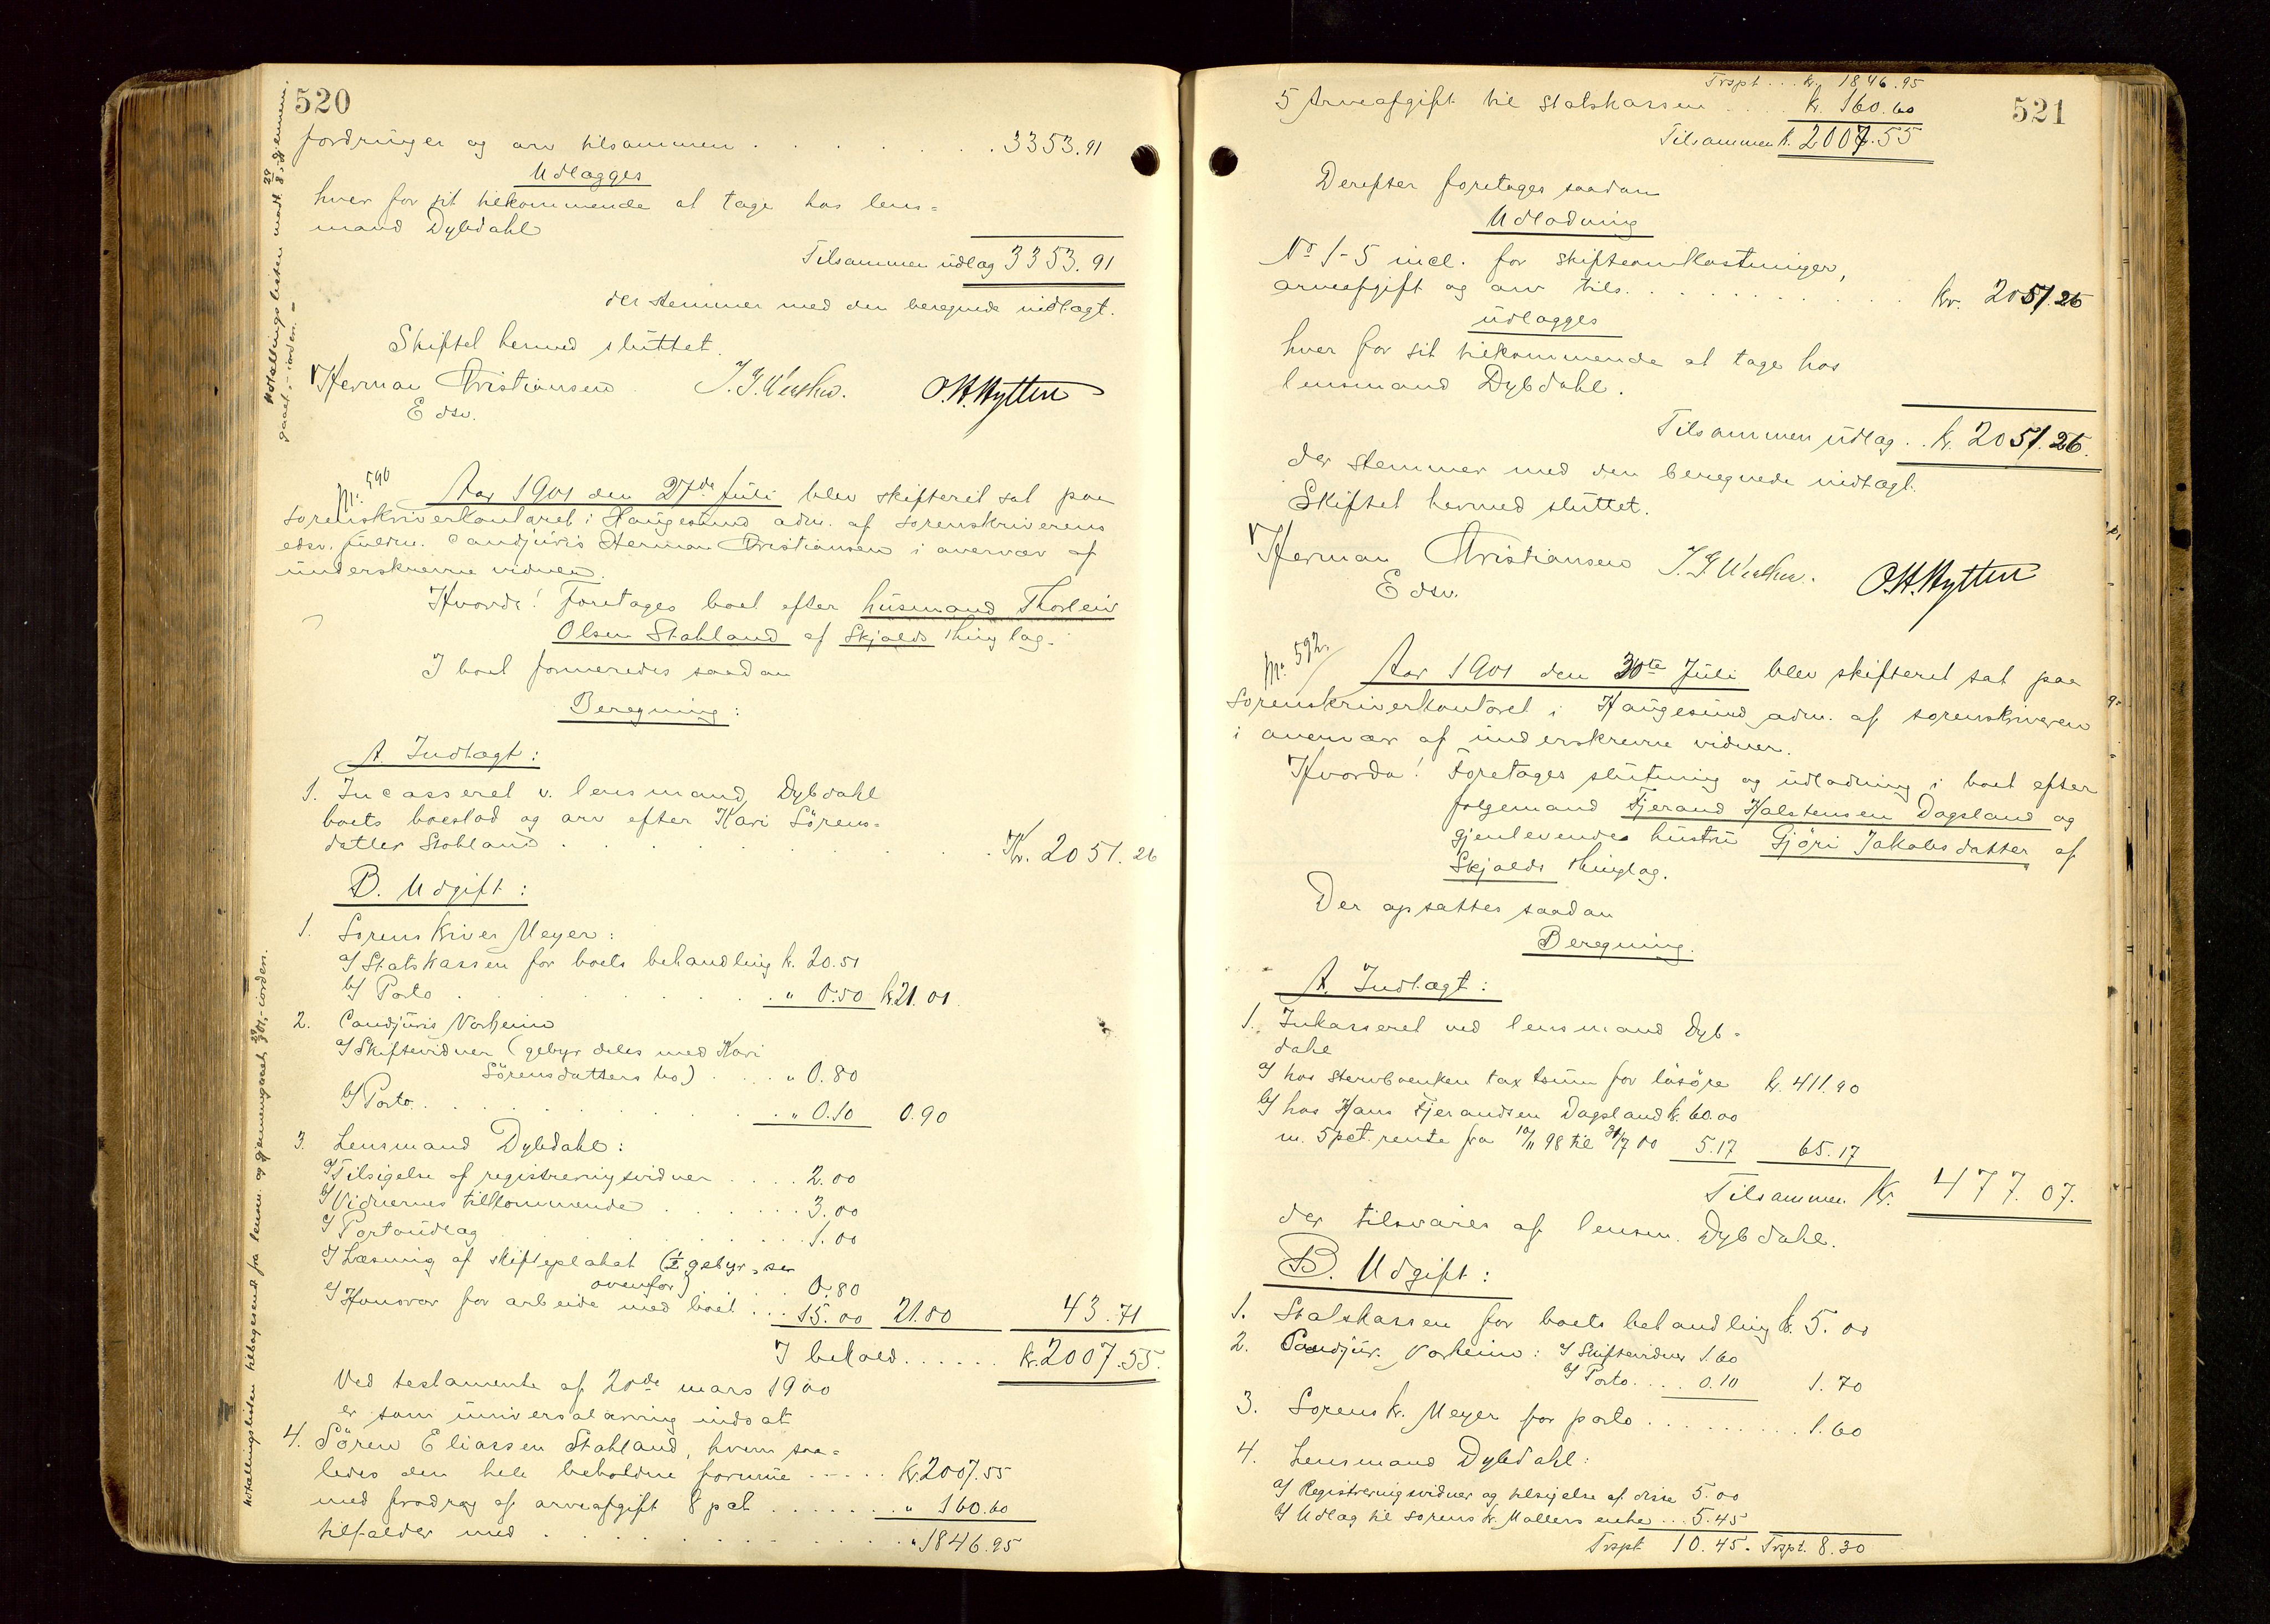 520
fordringer og arv tilsammen . . . . . . . 3353.91
Udlægges
hver for sit tilkommende at tage hos lens=
mand Dybdahl
Tilsammen udlag 3353.91
der stemmer med den beregnede indtægt.
Skiftet hermed sluttet.
Herman Christiansen
Edsv.
O.H.Hytten
No. 590
Aar 1901 den 27de Juli blev skifteret sat paa
sorenskriverkontoret i Haugesund adm. af sorenskriverens
edsv. fuldm. cand juris Herman Christiansen i overvær af
underskrevne vidner.
Hvorda! Foretoges boet efter husmand Thorleiv
Olsen Stakland af Skjolds thinglag.
I boet formeredes saadan
Beregning:
A. Indtægt:
1. Incasseret v. lensmand Dybdahl
boets boeslod og arv efter Kari Sörens=
datter Stakland . . . . . . . . Kr. 2051.26
B. Udgift:
1. Sorenskriver Meyer:
a/ Statskassen for boets behandling k. 20.51
b/ Porto . . . . . . . " 0.50 k. 21.01
2. Candjuris Vorheim
a/ Skiftevidner (gebyr deles med Kari
Sörensdatters bo) . . . . " 0.80
b/ Porto . . . . . . . " 0.10 0.90
3. Lensmand Dybdahl:
a/ Tilsigelse af registreringsvidner . . . . 2.00
b/ Vidnernes tilkommende . . . . . . 3.00
c/ Portoudlag . . . . . . . . 1.00
d/ Læsning af skifteplakat (½ gebyr, se
ovenfor) . . . 0.80
e/ Honorar for arbeide med boet . . . 15.00 21.80 43.71
I behold . . . . . . k. 2007.55.
Ved testamente af 20de mars 1900
er som universalarving indsat
4. Sören Eliassen Stakland, hvem saa=
ledes den hele beholdne formue . . . . . kr. 2007.55
med fradrag af arveafgift 8 pct . . . . . . . " 160.60
tilfalder med . . . . . . . . . . " 1846.95
521
Trspt . . . kr. 1846.95
5 Arveafgift til statskassen . . . . k. 160.60
Tilsammen k. 2007.55
Derefter foretages saadan
Udlodning
No 1-5 incl. for skifteomkostninger,
arveafgift og arv tils. . . . . . . . . . . . kr. 2051.26
udlægges
hver for sit tilkommende at tage hos
lensmand Dybdahl.
Tilsammen udlag . . k. 2051.26.
der stemmer med den beregnede indtægt.
Skiftet hermed sluttet.
Herman Christiansen
Edsv.
O.H.Hytten
No. 592
Aar 1901 den 30te Juli blev skifteret sat paa
sorenskriverkontoret i Haugesund, adm. af sorenskriveren
i overvær af underskrevne vidner.
Hvorda! Foretages slutning og udlodning i boet efter
folgemand Tjerand Halstensen Dagsland og
gjenlevende hustru Gjöri Jakobsdatter af
Skjolds thinglag.
Der opsattes saadan
Beregning.
A. Indtægt:
1. Inkasseret ved lensmand Dyb=
dahl
a/ hos stervboenken taxtsum for lösöre k. 411.90
b/ hos Hans Tjerandsen Dagsland k. 60.00
m. 5 pct. rente fra 10/11 98 til 31/7 00 5.17 65.17
Tilsammen Kr. 477.07.
der tilsvares af lensm. Dybdahl.
B. Udgift:
1. Statskassen for boets behandling k. 5.00
2. Candjur. Vorheim: a/ Skiftevidner 1.60
b/ Porto . . . . 0.10 1.70
3. Sorenskr. Meyer for porto . . . . . . . . 1.60
4. Lensmand Dybdahl:
a/ Registreringsvidner og tilsigelse af disse 5.00
b/ Udlag til sorenskr. Møllers enke . . . 5.45
Trspt 10.45. Trspt. 8.30